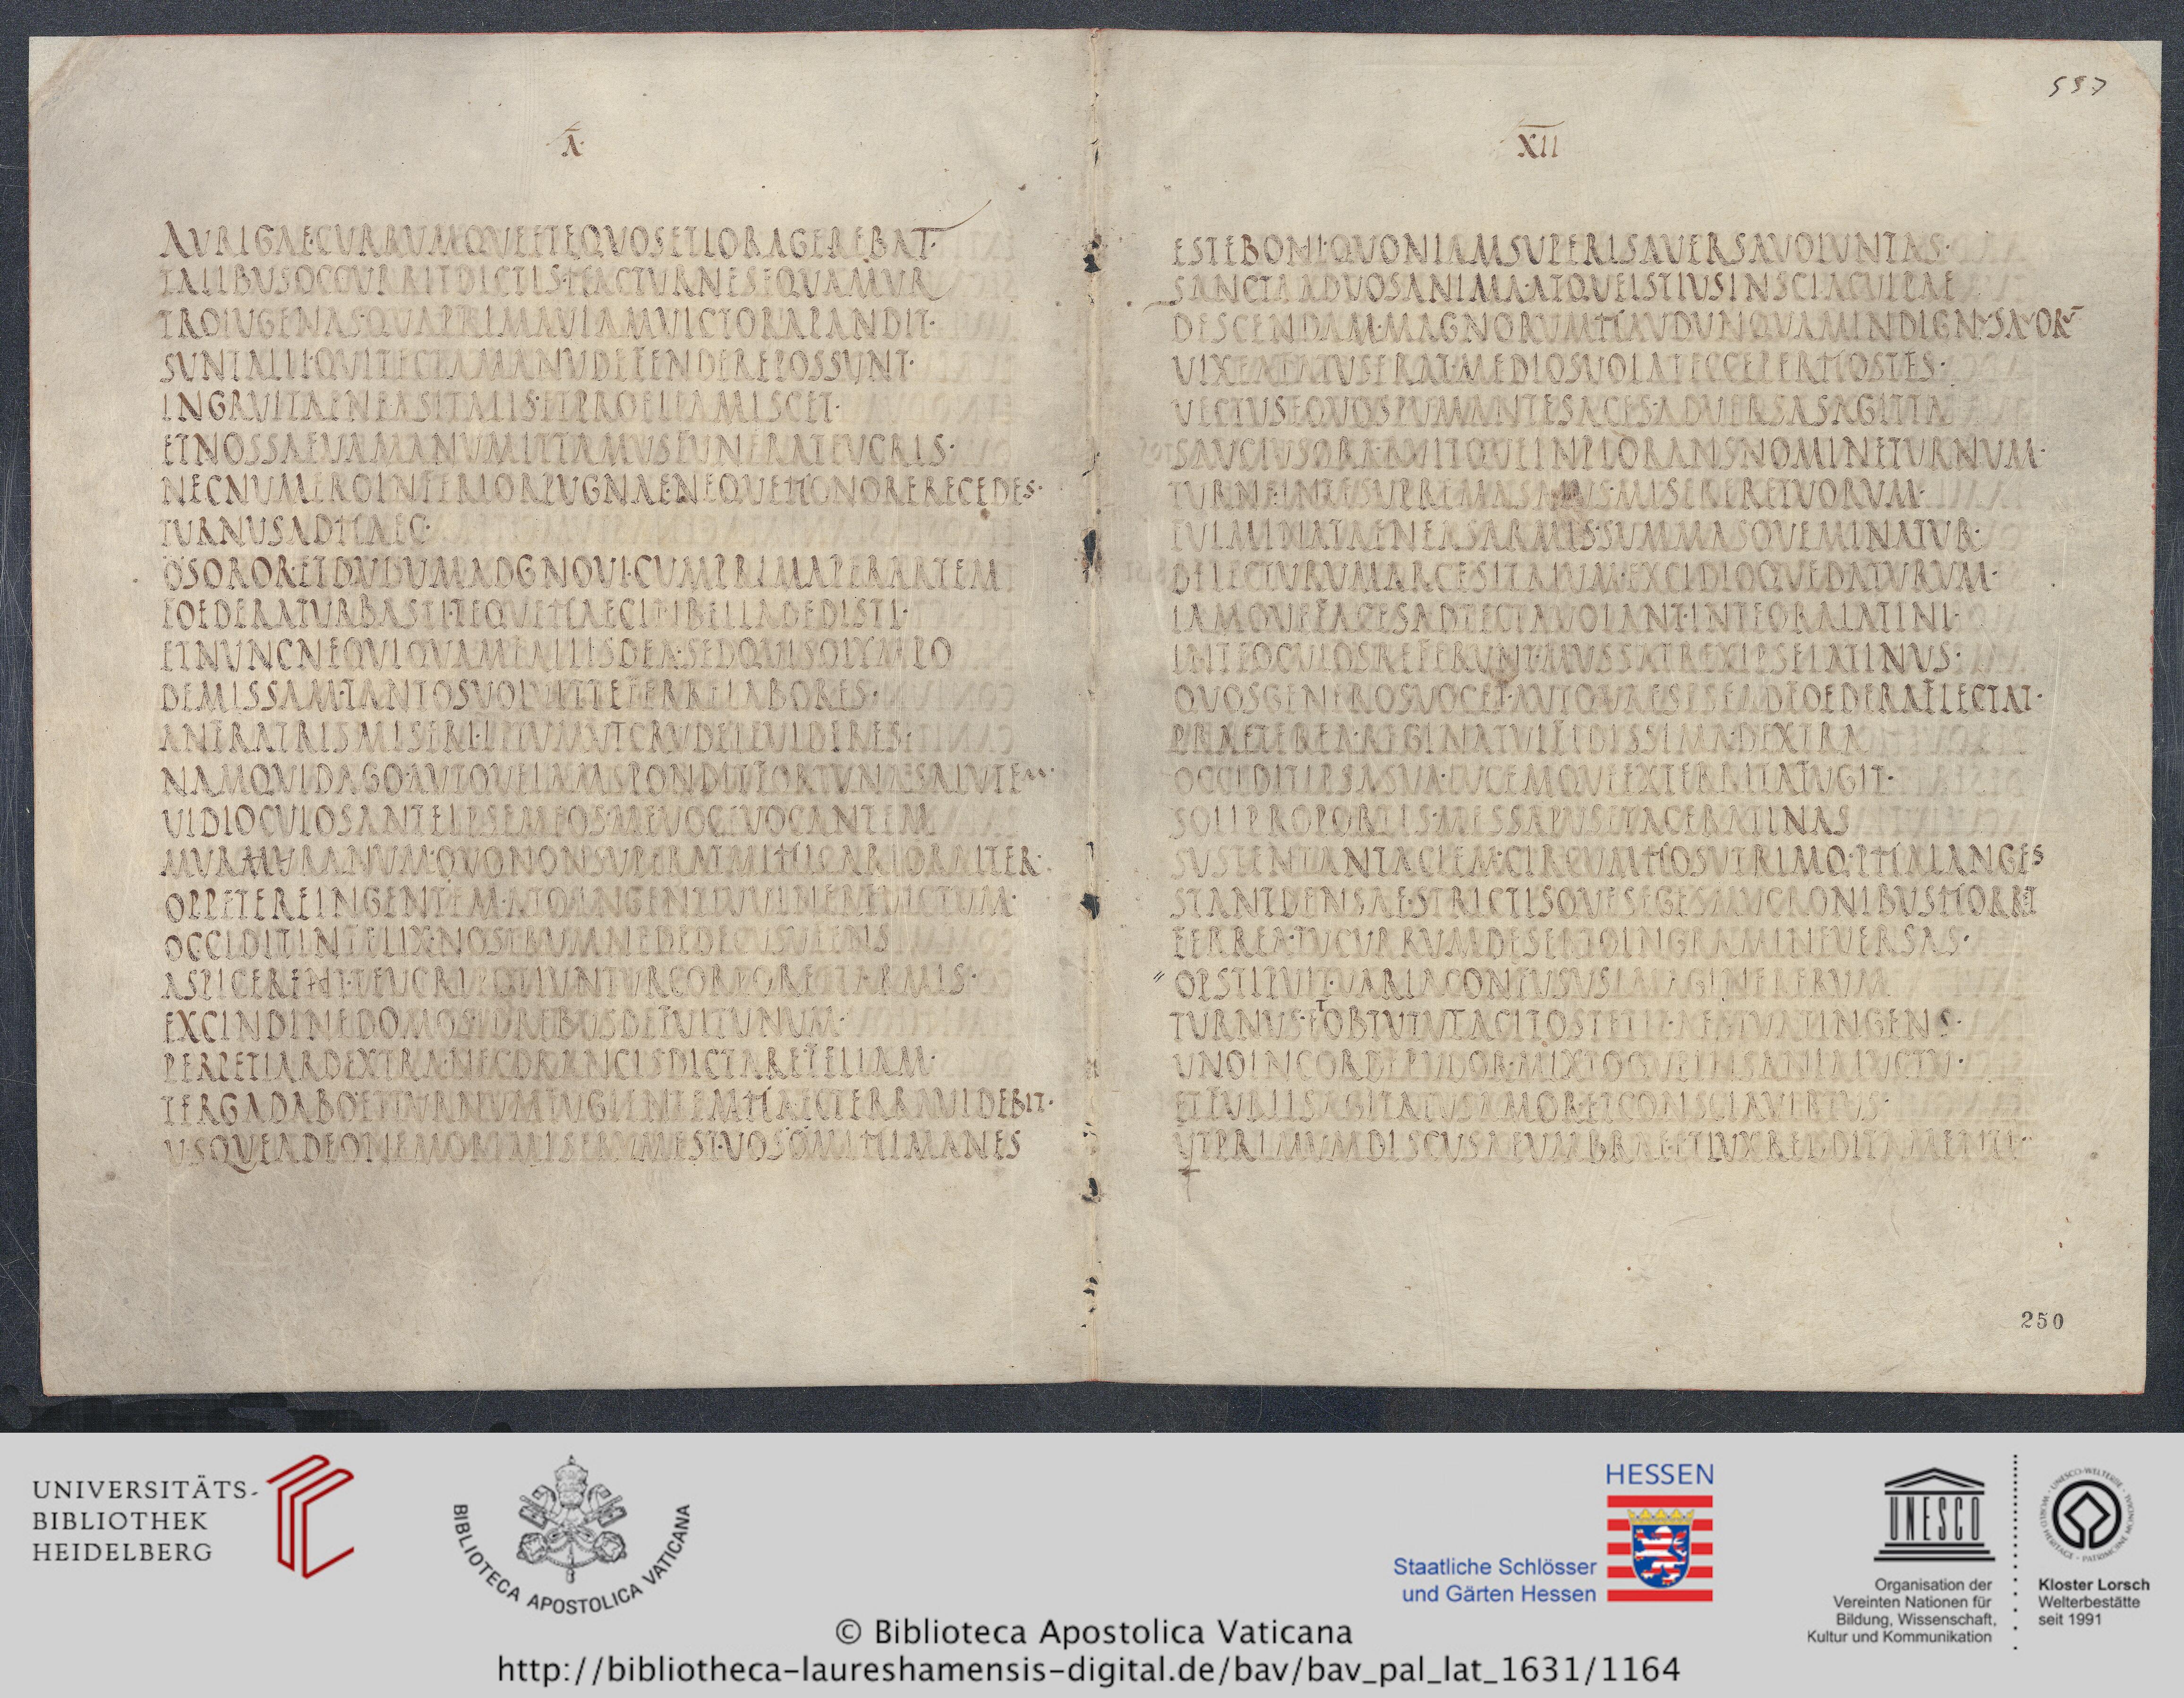 X
AVRIGAE·CVRRVMQVEETEQVOSETLORAGEREBAT·
TALIBUSOCCVRRITDICTIS·HACTVRNESEQVAMVR
TROIUGENAS·QVAPRIMAVIAMVICTORAPANDIT·
SVNTALII·QVITECTAMANVDEFENDEREPOSSVNT·
INGRVITAENEASITALIS·ETPROELIAMISCET·
ETNOSSAEVAMANVMITTAMVSFUNERATEVCRIS·
NECNVMEROINFERIORPVGNAE·NEQVEHONORERECEDES·
TVRNUSADHAEC·
OSOROR·ETDVDUMADGNOVI·CVMPRIMAPERARTEM
FOEDERATVRBASTI·TEQVEHAECINBELLADEDISTI·
ETNUNCNEQVIQVAMFALLISDEA·SEDQVISOLYMPO
DEMISSAM·TANTOSVOLVITTEFERRELABORES·
ANFRATRISMISERI·LETVMVTCRVDELEVIDERES·
NAMQVIDAGO·AVTQVEIAMSPONDITFORTVNASALVTEM·
VIDIOCVLOSANTEIPSEMEOS·MEVOCEVOCANTEM
MVRRANVM·QVONONSVPERATMIHICARIORALTER·
OPPETEREINGENTEM·ATQVINGENTIVVLNEREVICTVM·
OCCIDITINFELIX·NOSTRVMNEDEDECVSVFENS
ASPICERET·TEVCRIPOTIVNTVRCORPOREETARMIS·
EXCINDINEDOMOS·IDREBUSDEFVITVNVM·
PERPETIAR·DEXTRA·NECDRANCISDICTAREFELLAM·
TERGADABO·ETTVRNVMFVGIENTEMHAECTERRAVIDEBIT·
VSQVEADEONEMORIMISERVMEST·VOSOMIHIMANES
XII
ESTEBONI·QVONIAMSVPERISAVERSAVOLVNTAS·
SANCTAADVOSANIMA·ATQVEISTIVSINSCIACVLPAE
DESCENDAM·MAGNORVMHAVDVNQVAMINDIGNVSAVOR
VIXEAFATVSERAT·MEDIOSVOLATECCEPERHOSTES·
VECTVSEQVOSPVMANTESACES·ADVERSASAGITTA
SAVCIVSORA·RVITQVEINPLORANSNOMINETVRNVM·
TVRNE·INTESVPREMASALVS·MISEREREТVORVM·
FVLMINATAENEASARMIS·SVMMASQVEMINATVR·
DEIECTVRVMARCESITALVM·EXCIDIOQVEDATVRVM·
IAMQVEFACESADTECTAVOLANT·INTEORALATINI·
INTEOCVLOSREFERVNT·MVSSATREXIPSELATINVS·
QVOSGENEROSVOCET·AVTQVAESESEADFOEDERAFLECTAT·
PRAETEREA·REGINATVIFIDISSIMA·DEXTRA
OCCIDITIPSASVA·LVCEMQVEEXTERRITAFVGIT·
SOLIPROPORTIS·MESSAPVSETACERATINAS
SVSTENTANTACIEM·CIRCVMHOSVTRIMQ·PHALANGES
STANTDENSAE·STRICTISQVESEGESMVCRONIBVSHORRET
FERREA·TVCVRRVMDESERTOINGRAMINEVERSAS·
OPSTIPVIT·VARIACONFVSVSIMAGINERERVM
TVRNVS·ETOBTVTVTACITOSTETIT·AESTVATINGENS·
VNOINCORDEPVDOR·MIXTOQVEINSANIALVCTV·
ETFVRIISAGITATVSAMOR·ETCONSCIAVIRTVS·
VTPRIMVMDISCVSAEVMBRAE·ETLVXREDDITAMENTI·
250
UNIVERSITÄTS-
BIBLIOTHEK
HEIDELBERG
BIBLIOTECA APOSTOLICA VATICANA
HESSEN
Staatliche Schlösser
und Gärten Hessen
UNESCO
Organisation der
Vereinten Nationen für
Bildung, Wissenschaft,
Kultur und Kommunikation
Kloster Lorsch
Welterbestätte
seit 1991
© Biblioteca Apostolica Vaticana
http://bibliotheca-laureshamensis-digital.de/bav/bav_pal_lat_1631/1164